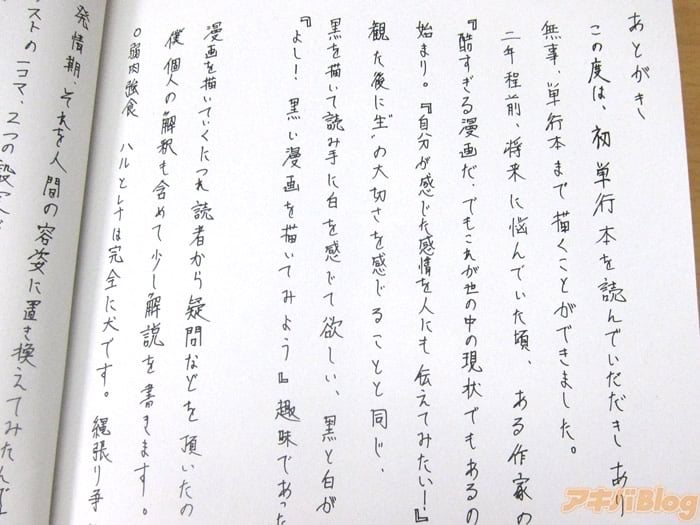 あとがき
この度は、初単行本を読んでいただきあり
無事、単行本まで描くことができました。
二年程前、将来に悩んでいた頃、ある作家の
『酷すぎる漫画だ、でもこれが世の中の現状でもあるの
始まり。『自分が感じた感情を人にも伝えてみたい!』
観た後に"生"の大切さを感じることと同じ、
黒を描いて読み手に白を感じて欲しい、黒と白が
『よし!黒い漫画を描いてみよう』趣味であった
漫画を描いていくにつれ読者から疑問などを頂いたの
僕個人の解釈も含めて少し解説を書きます。
○弱肉強食 ハルとレナは完全に犬です。縄張り争
発情期、それを人間の容姿に置き換えてみたんで
ストの一コマ、2つの
アキバBlog